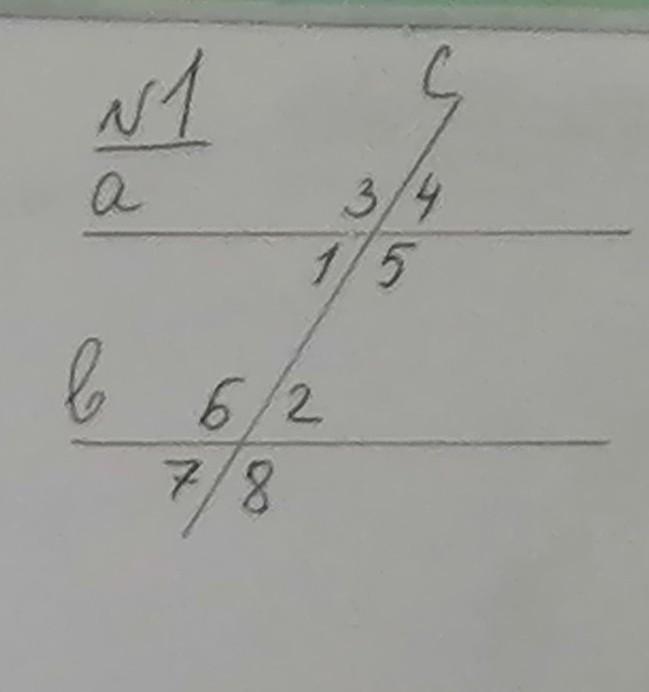 №1
c
a
3 4
1 5
b
6 2
7 8